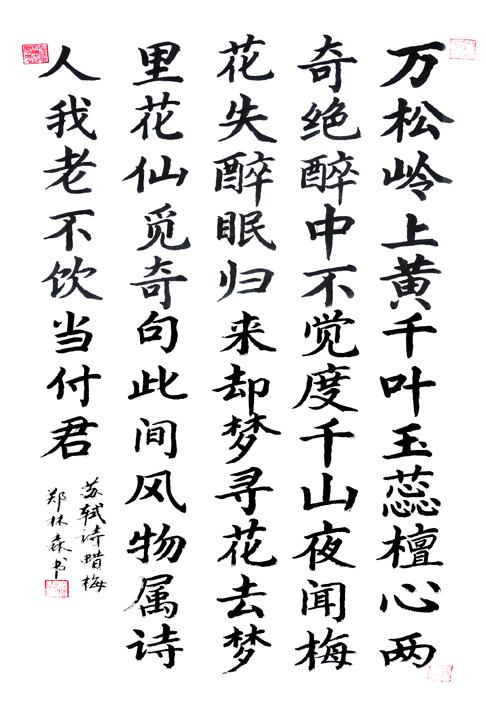 万松岭上黄千叶玉蕊檀心两
奇绝醉中不觉度千山夜闻梅
花失醉眠归来却梦寻花去梦
里花仙觅奇句此间风物属诗
人我老不饮当付君
苏轼诗蜡梅
郑林森书